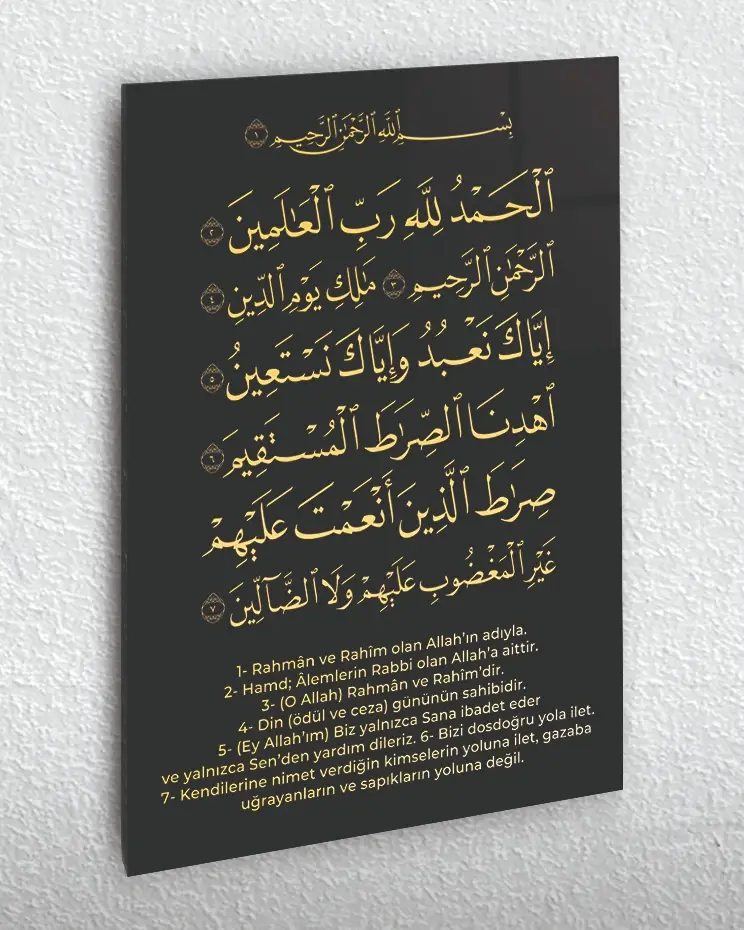 بِسْمِ ٱللَّهِ ٱلرَّحْمَٰنِ ٱلرَّحِيمِ ١
ٱلْحَمْدُ لِلَّهِ رَبِّ ٱلْعَٰلَمِينَ ٢
ٱلرَّحْمَٰنِ ٱلرَّحِيمِ ٣ مَٰلِكِ يَوْمِ ٱلدِّينِ ٤
إِيَّاكَ نَعْبُدُ وَإِيَّاكَ نَسْتَعِينُ ٥
ٱهْدِنَا ٱلصِّرَٰطَ ٱلْمُسْتَقِيمَ ٦
صِرَٰطَ ٱلَّذِينَ أَنْعَمْتَ عَلَيْهِمْ
غَيْرِ ٱلْمَغْضُوبِ عَلَيْهِمْ وَلَا ٱلضَّآلِّينَ ٧
1- Rahmân ve Rahîm olan Allah'ın adıyla.
2- Hamd; Âlemlerin Rabbi olan Allah'a aittir.
3- (O Allah) Rahmân ve Rahîm'dir.
4- Din (ödül ve ceza) gününün sahibidir.
5- (Ey Allah'ım) Biz yalnızca Sana ibadet eder
ve yalnızca Sen'den yardım dileriz. 6- Bizi dosdoğru yola ilet.
7- Kendilerine nimet verdiğin kimselerin yoluna ilet, gazaba
uğrayanların ve sapıkların yoluna değil.